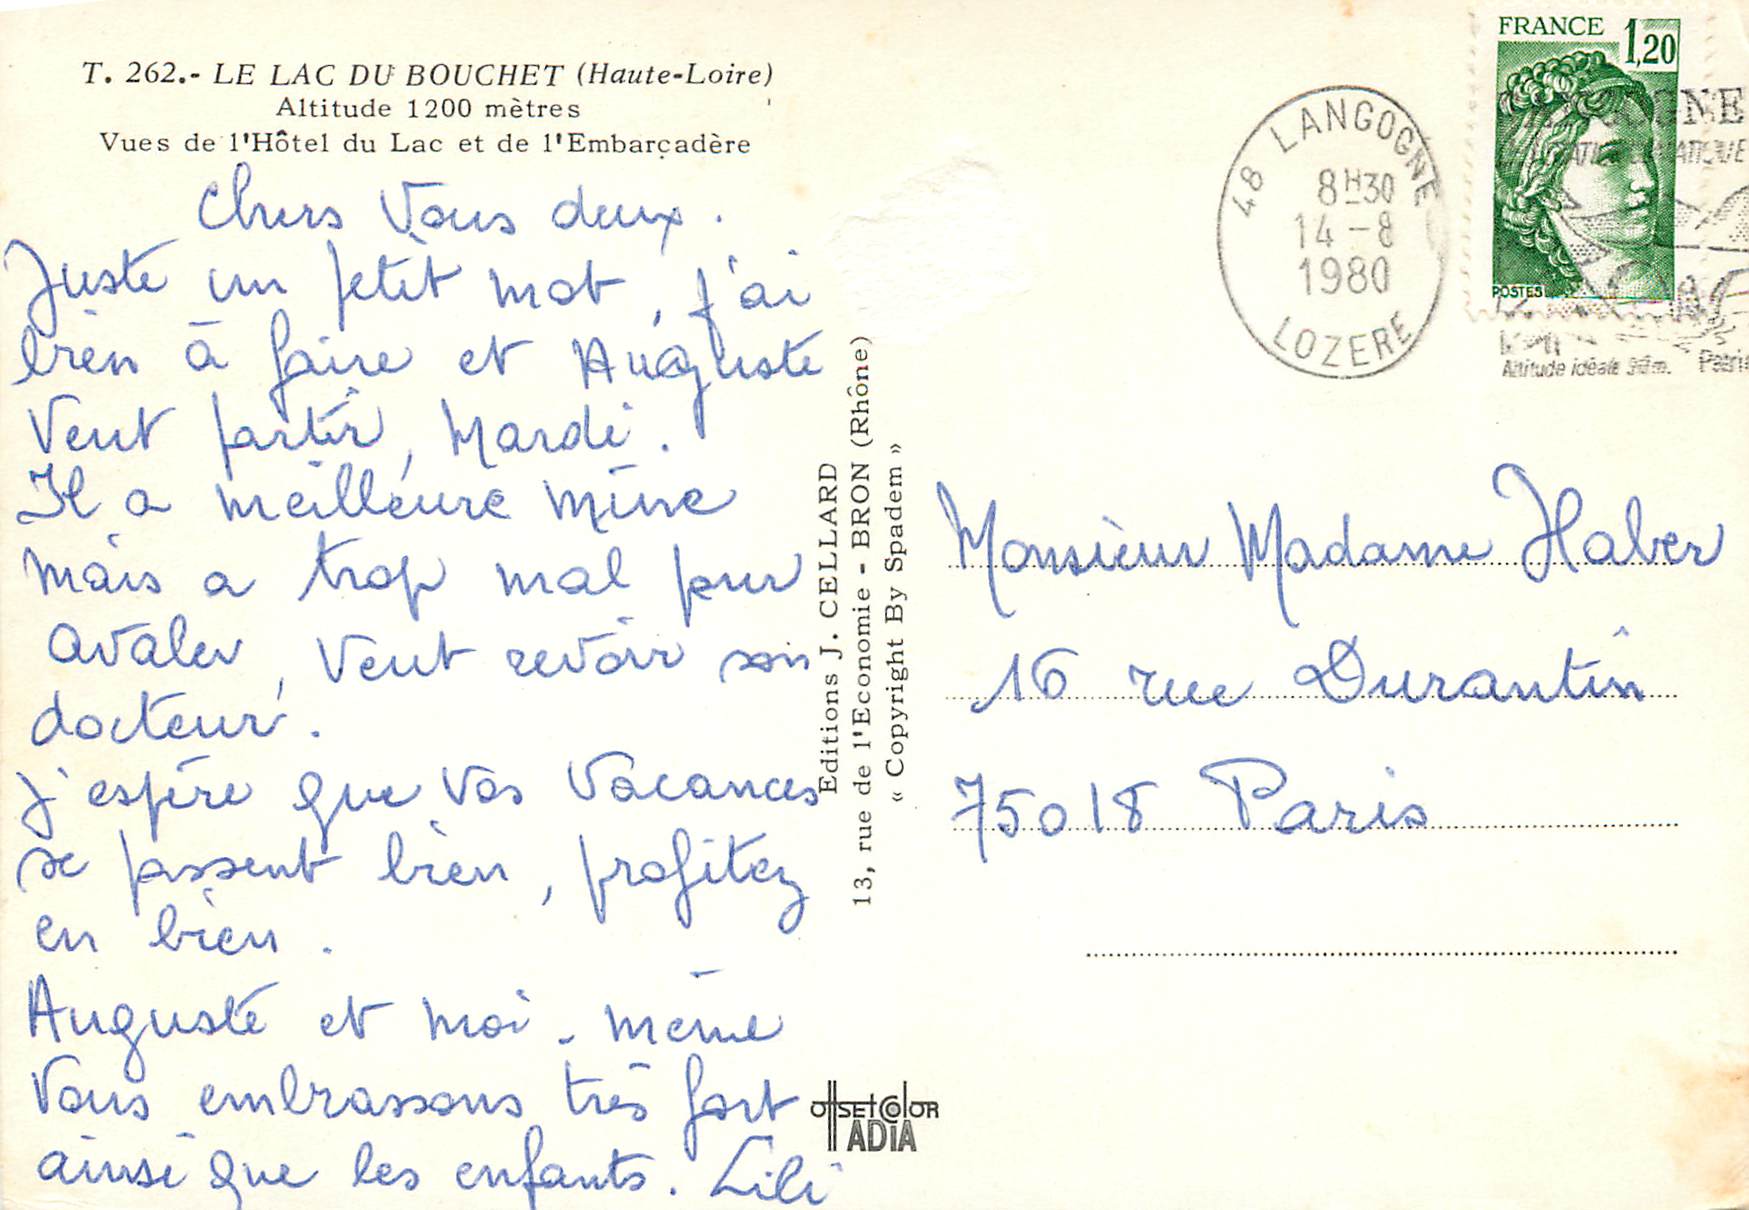 T. 262.- LE LAC DU BOUCHET (Haute-Loire)
Altitude 1200 mètres
Vues de l'Hôtel du Lac et de l'Embarcadère
Chers Vous deux.
Juste un petit mot, j'ai
bien à faire et Auguste
Veut partir, Mardi.
Il a meilleure mine
mais a trop mal pour
avaler, Veut revoir son
docteur.
J'espère que vos Vacances
se passent bien, profitez
en bien.
Auguste et moi-même
Vous embrassons très fort
ainsi que les enfants. Lili
Editions J. CELLARD
13, rue de l'Economie - BRON (Rhône)
« Copyright By Spadem »
OffSEt COlOR
ADIA
48 LANGOGNE
8H30
14-8
1980
LOZERE
FRANCE 1,20
POSTES
Altitude idéale
Monsieur Madame Haber
16 rue Durantin
75018 Paris